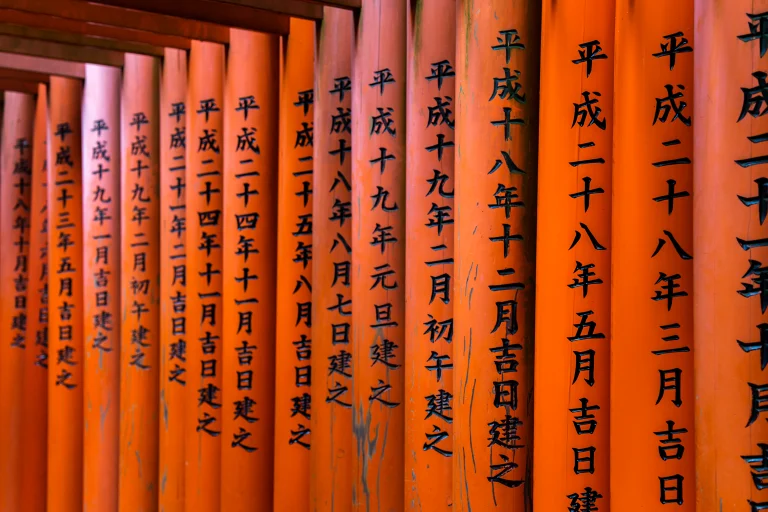 平成二十一年十月吉
平成二十八年三月吉日
平成二十八年五月吉日建
平成十八年十二月吉日建之
平成十九年二月初午建之
平成十九年元旦建之
平成十八年八月七日建之
平成二十五年八月吉日建之
平成二十四年十一月吉日建之
平成二十四年十一月吉日建之
平成二十一年二月吉日建之
平成十九年二月初午建之
平成十九年一月吉日建之
平成二十三年五月吉日建之
月吉日建之
平成十八年十月吉日建之